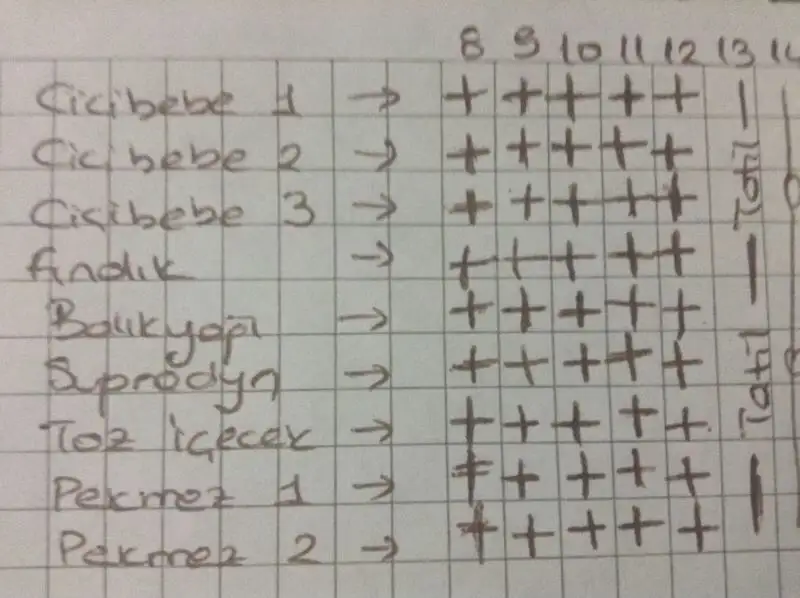 8 9 10 11 12 13 14
Cicibebe 1 → + + + + + —
Cicibebe 2 → + + + + + Tatil
Cicibebe 3 → + + + + +
findik → + + + + + —
Balıkyağı → + + + + +
Supradyn → + + + + + Tatil
Toz içecek → + + + + +
Pekmez 1 → + + + + + —
Pekmez 2 → + + + + +